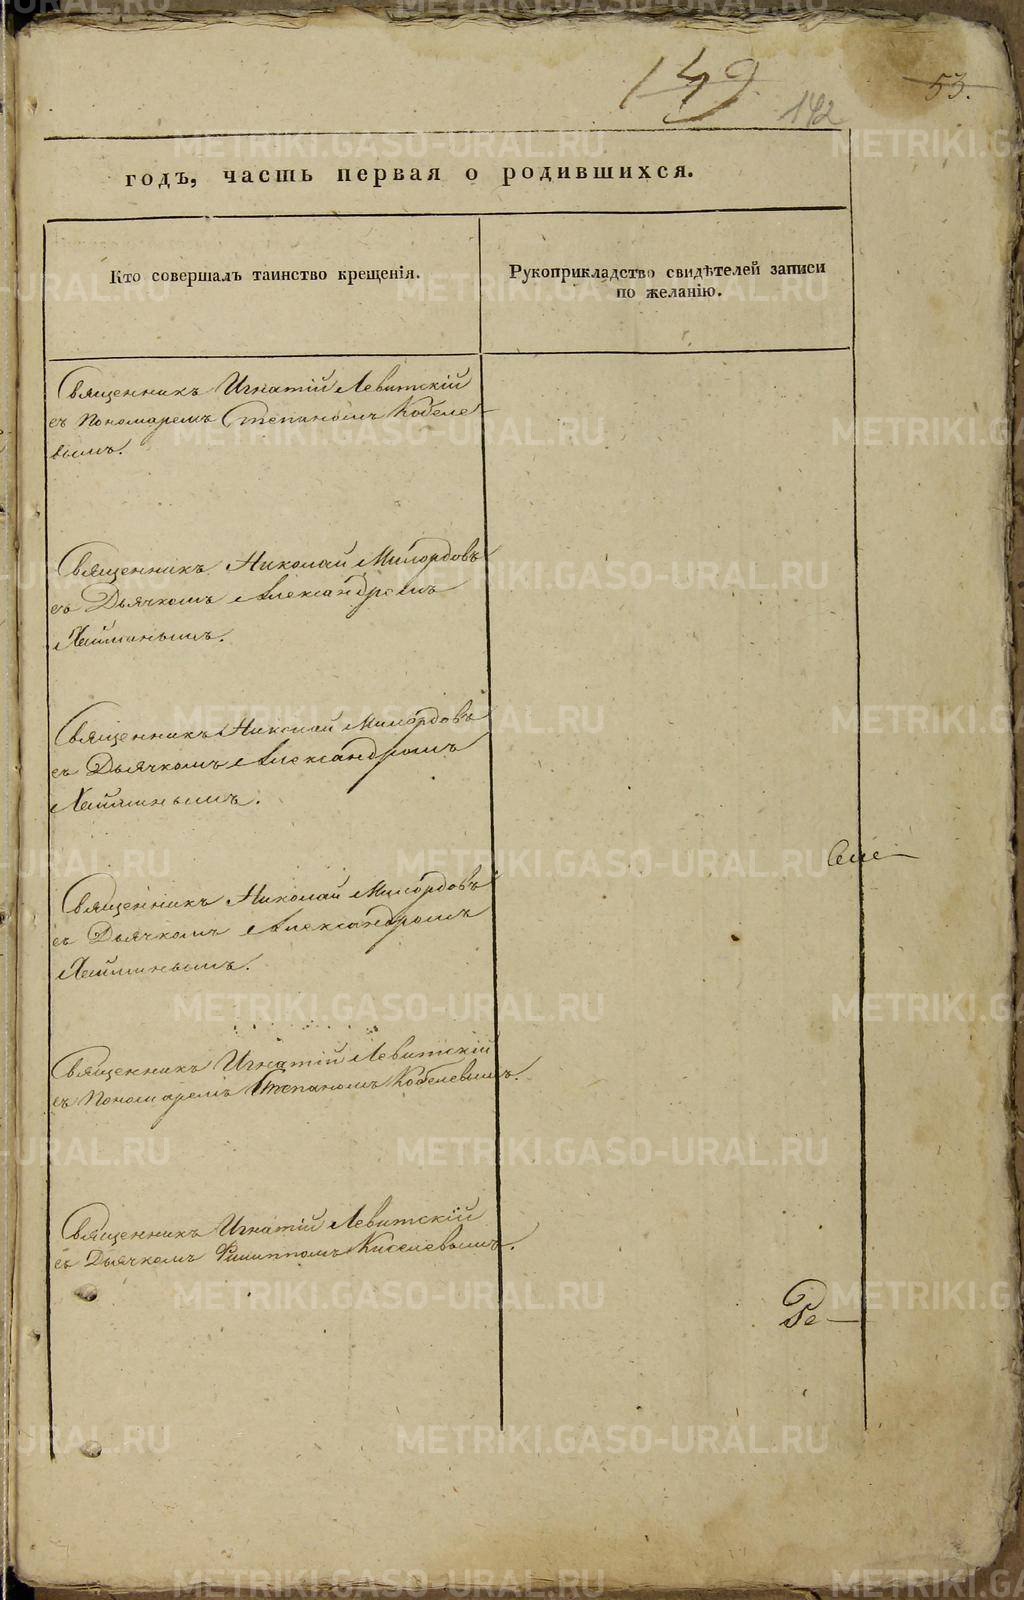 149
142
53.
годъ, часть первая о родившихся.
Кто совершалъ таинство крещенія.
Рукоприкладство свидѣтелей записи
по желанію.
Священникъ Игнатій Левитскій
съ Пономаремъ Степаномъ Кобеле-
вымъ.
Священникъ Николай Милордовъ
съ Дьячкомъ Александромъ
Хайминымъ.
Священникъ Николай Милордовъ
съ Дьячкомъ Александромъ
Хайминымъ.
Священникъ Николай Милордовъ
съ Дьячкомъ Александромъ
Хайминымъ.
Священникъ Игнатій Левитскій
съ Пономаремъ Степаномъ Кобелевымъ.
Священникъ Игнатій Левитскій
съ Дьячкомъ Филиппомъ Киселевымъ.
Ре-
METRIKI.GASO-URAL.RU